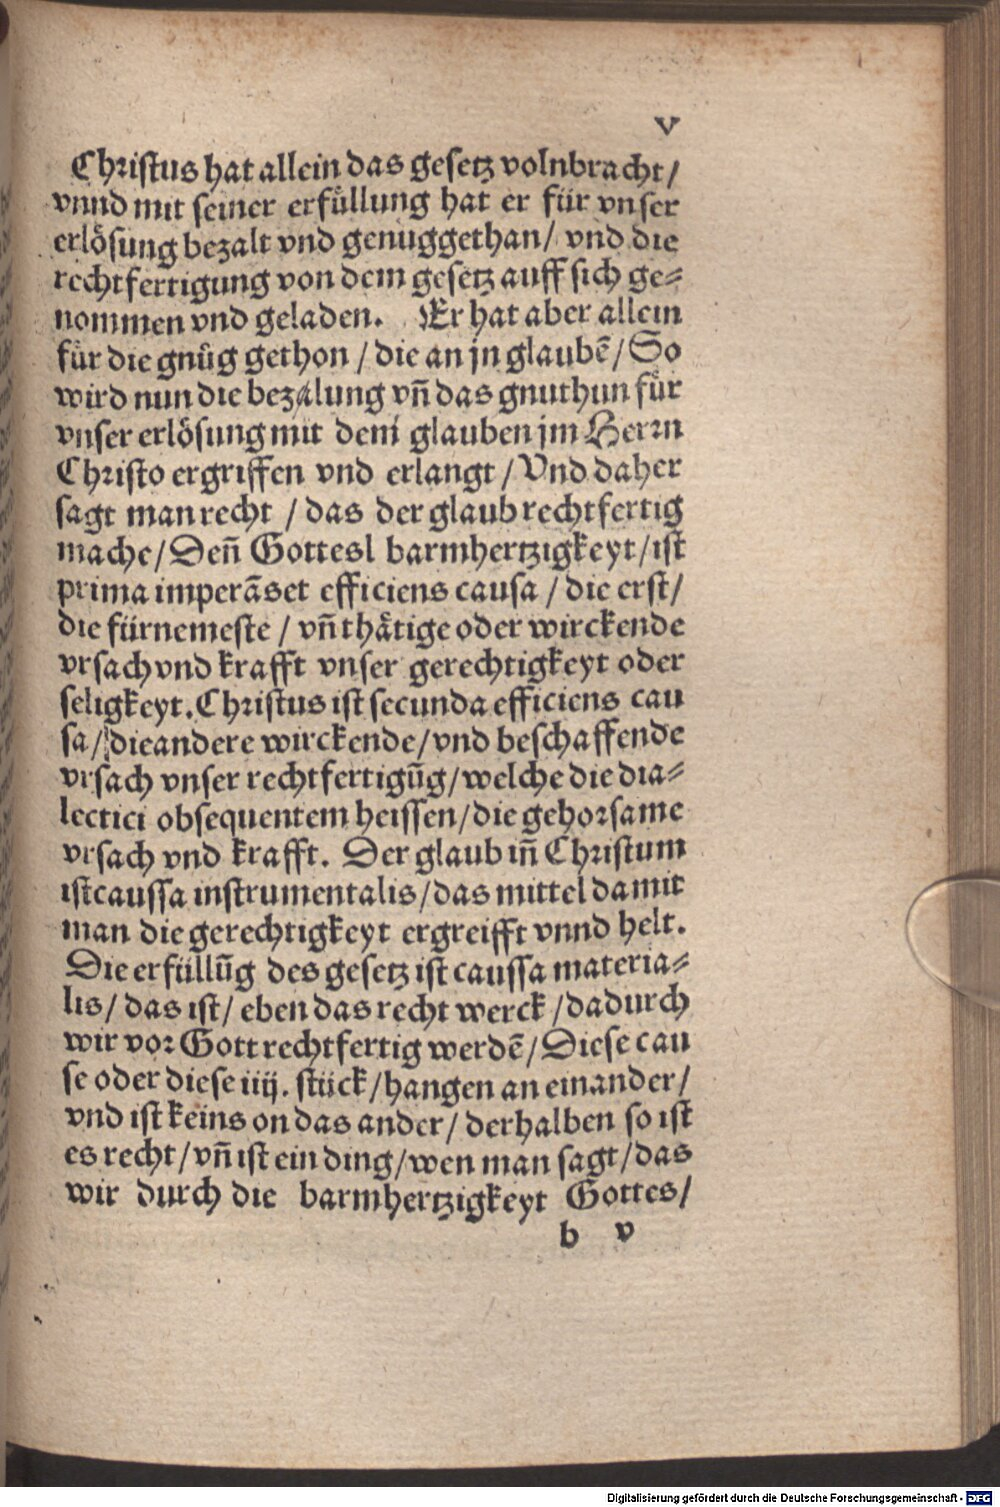 v
Christus hat allein das gesetz volnbracht/
vnnd mit seiner erfüllung hat er für vnser
erlösung bezalt vnd genuggethan/ vnd die
rechtfertigung von dem gesetz auff sich ge-
nommen vnd geladen. Er hat aber allein
für die gnüg gethon / die an jn glaubē/ So
wird nun die bezalung vn̄ das gnuthun für
vnser erlösung mit dem glauben jm Herrn
Christo ergriffen vnd erlangt / Vnd daher
sagt man recht / das der glaub rechtfertig
mache/ Den̄ Gottesl barmhertzigkeyt/ ist
prima imperāset efficiens causa / die erst/
die fürnemeste / vn̄ thätige oder wirckende
vrsach vnd krafft vnser gerechtigkeyt oder
seligkeyt. Christus ist secunda efficiens cau
sa/ die andere wirckende/ vnd beschaffende
vrsach vnser rechtfertigūg/ welche die dia-
lectici obsequentem heissen/ die gehorsame
vrsach vnd krafft. Der glaub in̄ Christum
ist caussa instrumentalis/ das mittel damit
man die gerechtigkeyt ergreifft vnnd helt.
Die erfüllūg des gesetz ist caussa materia-
lis/ das ist/ eben das recht werck / dadurch
wir vor Gott rechtfertig werdē/ Diese cau
se oder diese iiij. stück/ hangen an einander/
vnd ist keins on das ander/ derhalben so ist
es recht/ vn̄ ist ein ding/ wen man sagt/ das
wir durch die barmhertzigkeyt Gottes/
b v
Digitalisierung gefördert durch die Deutsche Forschungsgemeinschaft - DFG